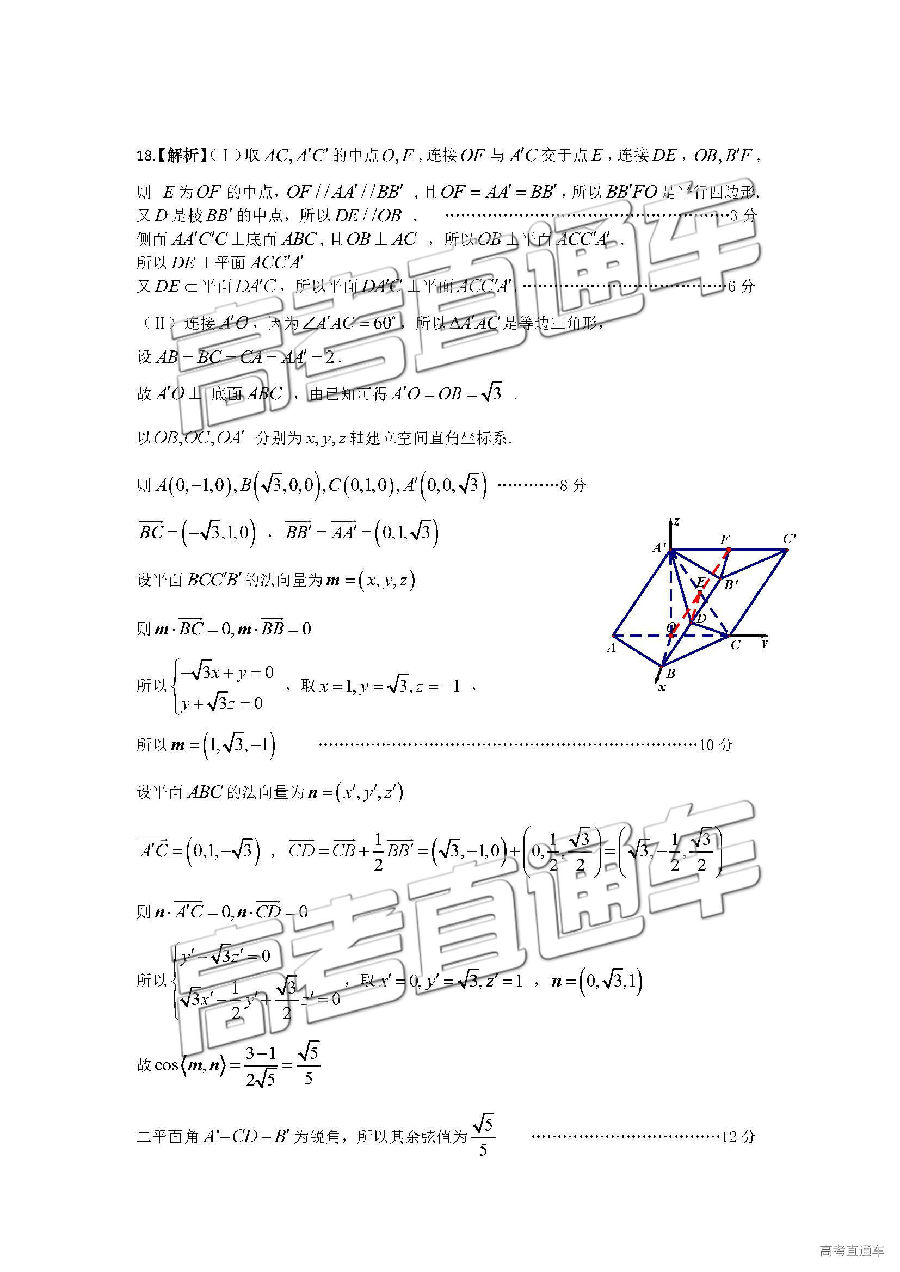 18.【解析】（Ⅰ）取 AC, A′C′ 的中点 O, F，连接 OF 与 A′C 交于点 E，连接 DE，OB, B′F，
则 E 为 OF 的中点，OF // AA′ // BB′，且 OF = AA′ = BB′，所以 BB′FO 是平行四边形，
又 D 是棱 BB′ 的中点，所以 DE // OB ．……………3 分
侧面 AA′C′C ⊥ 底面 ABC，且 OB ⊥ AC ，所以 OB ⊥ 平面 ACC′A′ ．
所以 DE ⊥ 平面 ACC′A′
又 DE ⊂ 平面 DA′C，所以平面 DA′C ⊥ 平面 ACC′A′ ……………6 分
（II）连接 A′O，因为 ∠A′AC = 60°，所以 ΔA′AC 是等边三角形，
设 AB = BC = CA = AA′ = 2．
故 A′O ⊥ 底面 ABC ，由已知可得 A′O = OB = √3 ．
以 OB, OC, OA′ 分别为 x, y, z 轴建立空间直角坐标系.
则 A(0,−1,0), B(√3,0,0), C(0,1,0), A′(0,0,√3) …………8 分
BC = (−√3,1,0) ，BB′ = AA′ = (0,1,√3)
z
A′
F
C′
E
B′
D
O
A
C
y
B
x
设平面 BCC′B′ 的法向量为 m = (x, y, z)
则 m · BC = 0, m · BB = 0
所以 {−√3x + y = 0
y + √3z = 0 ，取 x = 1, y = √3, z = −1 ，
所以 m = (1, √3, −1) ……………10 分
设平面 ABC′ 的法向量为 n = (x′, y′, z′)
A′C = (0,1,−√3) ，CD = CB + 1/2 BB′ = (√3,−1,0) + (0, 1/2, √3/2) = (√3, −1/2, √3/2)
则 n · A′C = 0, n · CD = 0
所以 {y′ − √3z′ = 0
√3x′ − 1/2 y′ + √3/2 z′ = 0 ，取 x′ = 0, y′ = √3, z′ = 1 ，n = (0, √3, 1)
故 cos⟨m, n⟩ = (3−1)/(2√5) = √5/5
二平面角 A′−CD−B′ 为锐角，所以其余弦值为 √5/5 ……………12 分
高考直通车
高考直通车
高考直通车